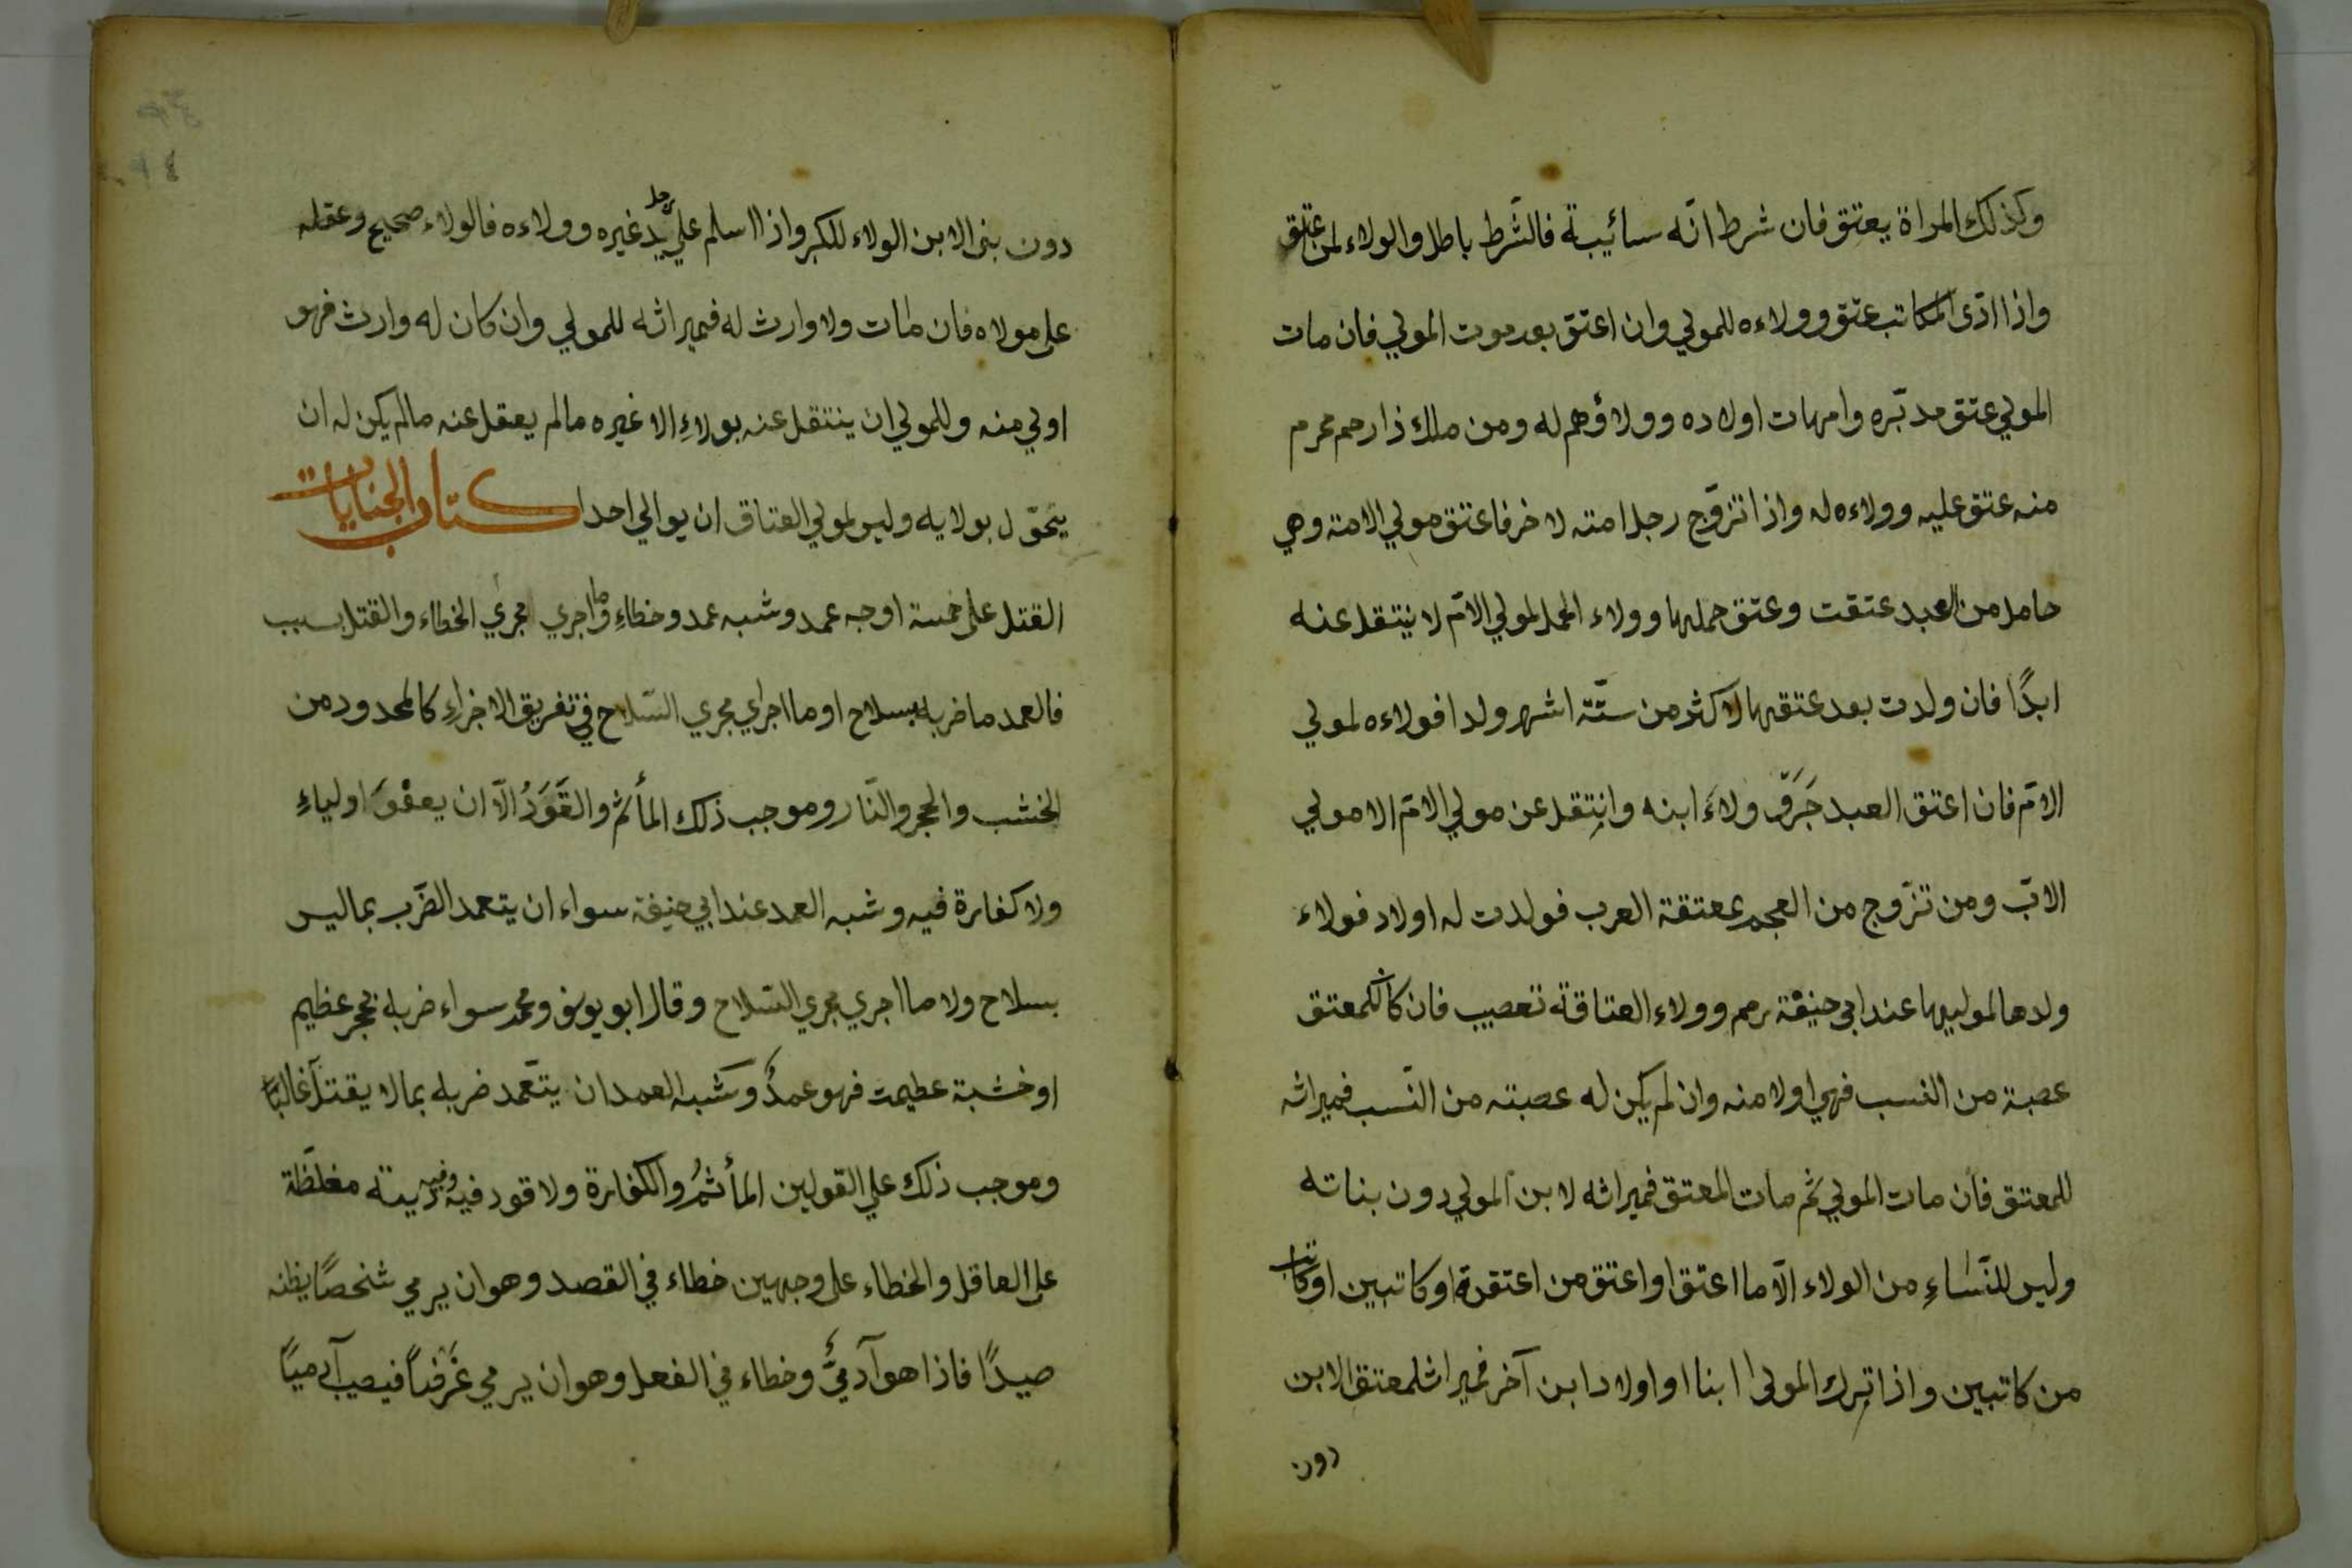 وكذلك المراة يعتق فان شرط انّه سائيبة فالشّرط باطل والولاء لمن عتق
واذا ادّى المكاتب عتق وولاءه للمولي وان اعتق بعد موت المولي فان مات
المولي عتق مدبّره وامهات اولاده وولاؤهم له ومن ملك ذا رحم محرم
منه عتق عليه وولاءه له واذا تزوّج رجل امته لاخر فاعتق مولي الامة وهي
حامل من العبد عتقت وعتق حملها وولاء الحمل لمولي الامّ لا ينتقل عنه
ابدًا فان ولدت بعد عتقها لاكثر من ستّة اشهر ولدا فولاءه لمولي
الامّ فان اعتق العبد جَرَّ ولاءَ ابنه وانتقل عن مولي الامّ الا مولي
الابّ ومن تزّوج من العجم بمعتقة العرب فولدت له اولاد فولاء
ولدها لمواليها عند ابي حنيفة رحم وولاء العتاقة تعصيب فان كان للمعتق
عصبة من النسب فهي اولا منه وان لم يكن له عصبته من النّسب فميراثه
للمعتق فان مات المولي ثم مات المعتق فميراثه لابن المولي دون بناته
وليس للنّساءِ من الولاء الّا ما اعتق او اعتق من اعتقن او كاتبين او كاتب
من كاتبين واذا ترك المولى ابنا او اولاد ابن آخر فميراث المعتق الابن
دون
دون بنى الابن الولاء للكبر واذا اسلم رجل علي يد غيره وولاءه فالولاء صحيح وعقله
على مولاه فان مات ولا وارث له فميراثه للمولي وان كان له وارث فهو
اولي منه وللمولي ان ينتقل عنه بولاءِ الا غيره مالم يعقل عنه مالم يكن له ان
يتحوّل بولايه وليس لمولي العتاق ان يوالي احدا كتاب الجنايات
القتل على خمسة اوجه عمد وشبه عمد وخطاءِ وما اجري مجري الخطاء والقتل بسبب
فالعمد ما ضربه بسلاح او ما اجري مجري السّلاح في تفريق الاجزاءِ كالمحدود من
الخشب والحجر والنّار وموجب ذلك المأثم والقَوَدُ الّا ان يعفوَ اولياءِ
ولا كفارة فيه وشبه العمد عند ابي حنيفة سواء ان يتعمد الضّرب بما ليس
بسلاح ولا ما اجري مجري السّلاح وقال ابو يوسف ومحمد سواء ضربه بحجر عظيم
او خشبة عظيمت فهو عمدٌ وشبه العمد ان يتّعمد ضربه بما لا يقتل غالبًا
وموجب ذلك علي القولين المأثمُ والكفارة ولا قود فيه وفيه دية مغلّظة
على العاقل والخطاء على وجهين خطاء في القصد وهو ان يرمي شخصًا يظنه
صيدًا فاذا هو آدميٌّ وخطاء في الفعل وهو ان يرمي غرضًا فيصيب آدميًا